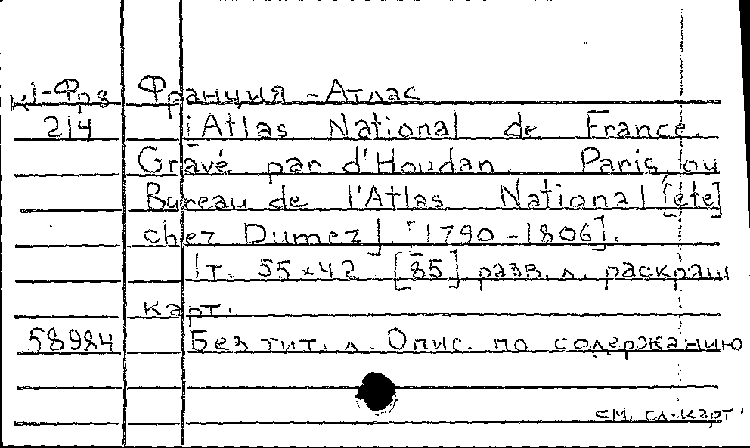 К1-Фрз Франция - Атлас
214 Atlas National de France.
Gravé par d'Houdan. Paris, ou
Bureau de l'Atlas National [ete]
chez Dumez] [1790-1806].
1 т. 55×42 [85] разв. л. раскраш
карт.
58984 Без тит. л. Опис. по содержанию
см. гл. карт.